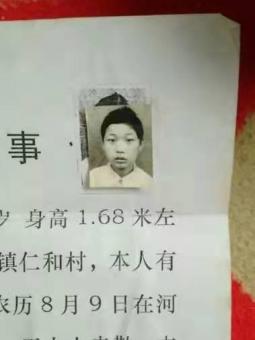 事
岁 身高1.68米左
镇仁和村，本人有
农历8月9日在河